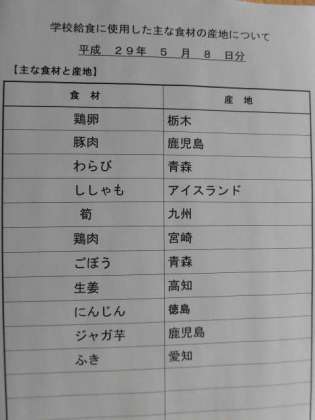 学校給食に使用した主な食材の産地について
平成 29年 5 月 8 日分
【主な食材と産地】
食 材 産 地
鶏卵 栃木
豚肉 鹿児島
わらび 青森
ししゃも アイスランド
筍 九州
鶏肉 宮崎
ごぼう 青森
生姜 高知
にんじん 徳島
ジャガ芋 鹿児島
ふき 愛知